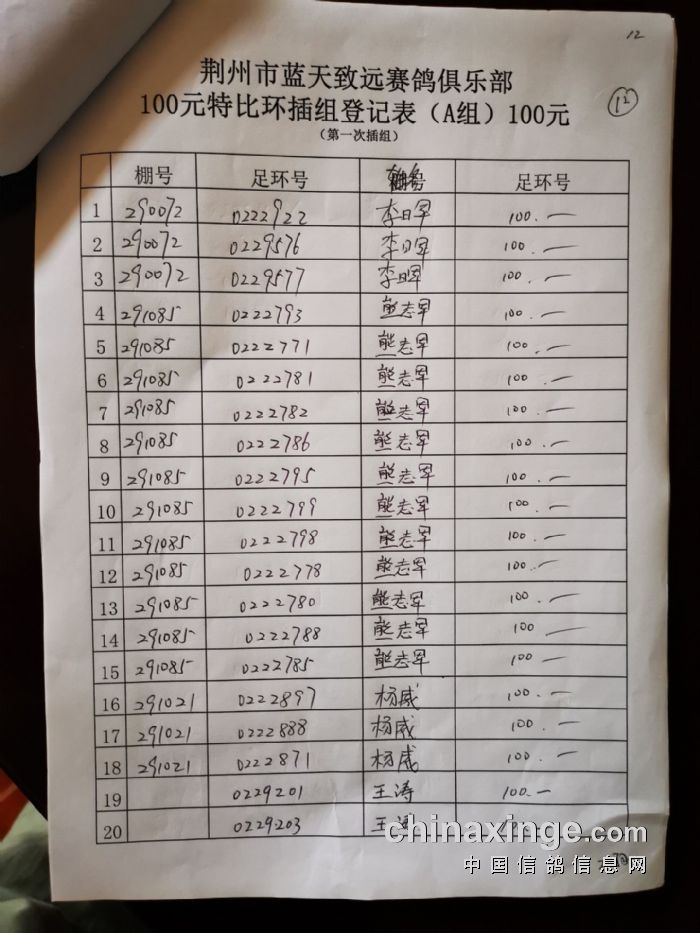 12
12
荆州市蓝天致远赛鸽俱乐部
100元特比环插组登记表（A组）100元
（第一次插组）
棚号 足环号 足环号
1 290072 0222922 李日军 100.—
2 290072 0229576 李日军 100.—
3 290072 0229577 李日军 100.—
4 291085 0222793 熊志军 100.—
5 291085 0222771 熊志军 100.—
6 291085 0222781 熊志军 100.—
7 291085 0222782 熊志军 100.—
8 291085 0222786 熊志军 100.—
9 291085 0222795 熊志军 100.—
10 291085 0222799 熊志军 100.—
11 291085 0222798 熊志军 100.—
12 291085 0222778 熊志军 100.—
13 291085 0222780 熊志军 100.—
14 291085 0222788 熊志军 100.—
15 291085 0222785 熊志军 100.—
16 291021 0222897 杨威 100.—
17 291021 0222888 杨威 100.—
18 291021 0222871 杨威 100.—
19 0229201 王涛 100.—
20 0229203 王涛
chinaxinge.com
中国信鸽信息网